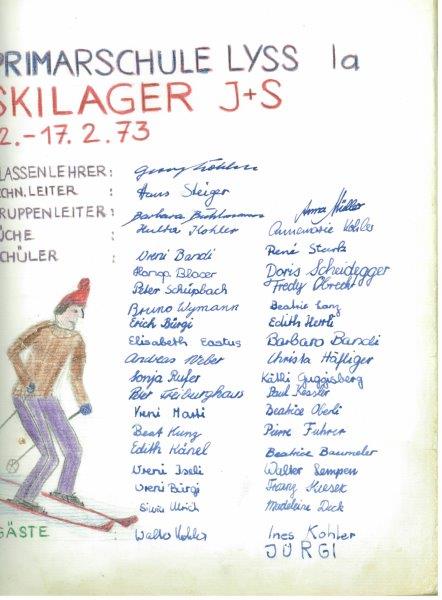 PRIMARSCHULE LYSS 1a
SKILAGER J+S
2.-17.2.73
LASSENLEHRER: Georg Kohler
CHN.LEITER : Hans Steiger
RUPPENLEITER: Barbara Anna Müller
ÜCHE : Kohler Annemarie Kohler
CHÜLER : Vreni Bandi René
Blaser Doris Scheidegger
Peter Schüpbach Fredy Obrecht
Bruno Wymann Beatrice Lanz
Erich Bürgi Edith
Elisabeth Eastus Barbara Bandi
Andreas Weber Christa Häfliger
Sonja Rufer Käthi Guggisberg
Peter Freiburghaus Paul Kessler
Vreni Marti Beatrice Oberli
Beat Kunz Pierre Fuhrer
Edith Känel Beatrice Baumeler
Vreni Iseli Walter Sempen
Vreni Bürgi Franz
Silvia Ulrich Madeleine Deck
GÄSTE Walto Kohler Ines Kohler
JÜRGI